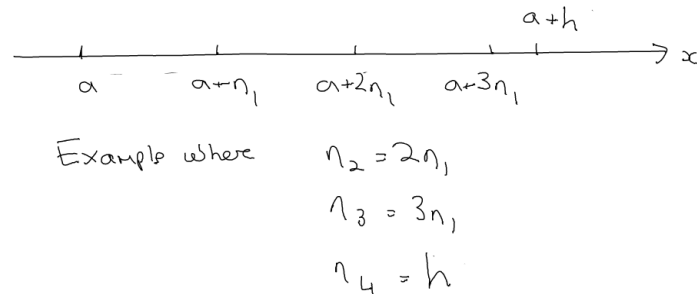 a+h
a a+η₁ a+2η₁ a+3η₁ x
Example where η₂ = 2η₁
η₃ = 3η₁
η₄ = h